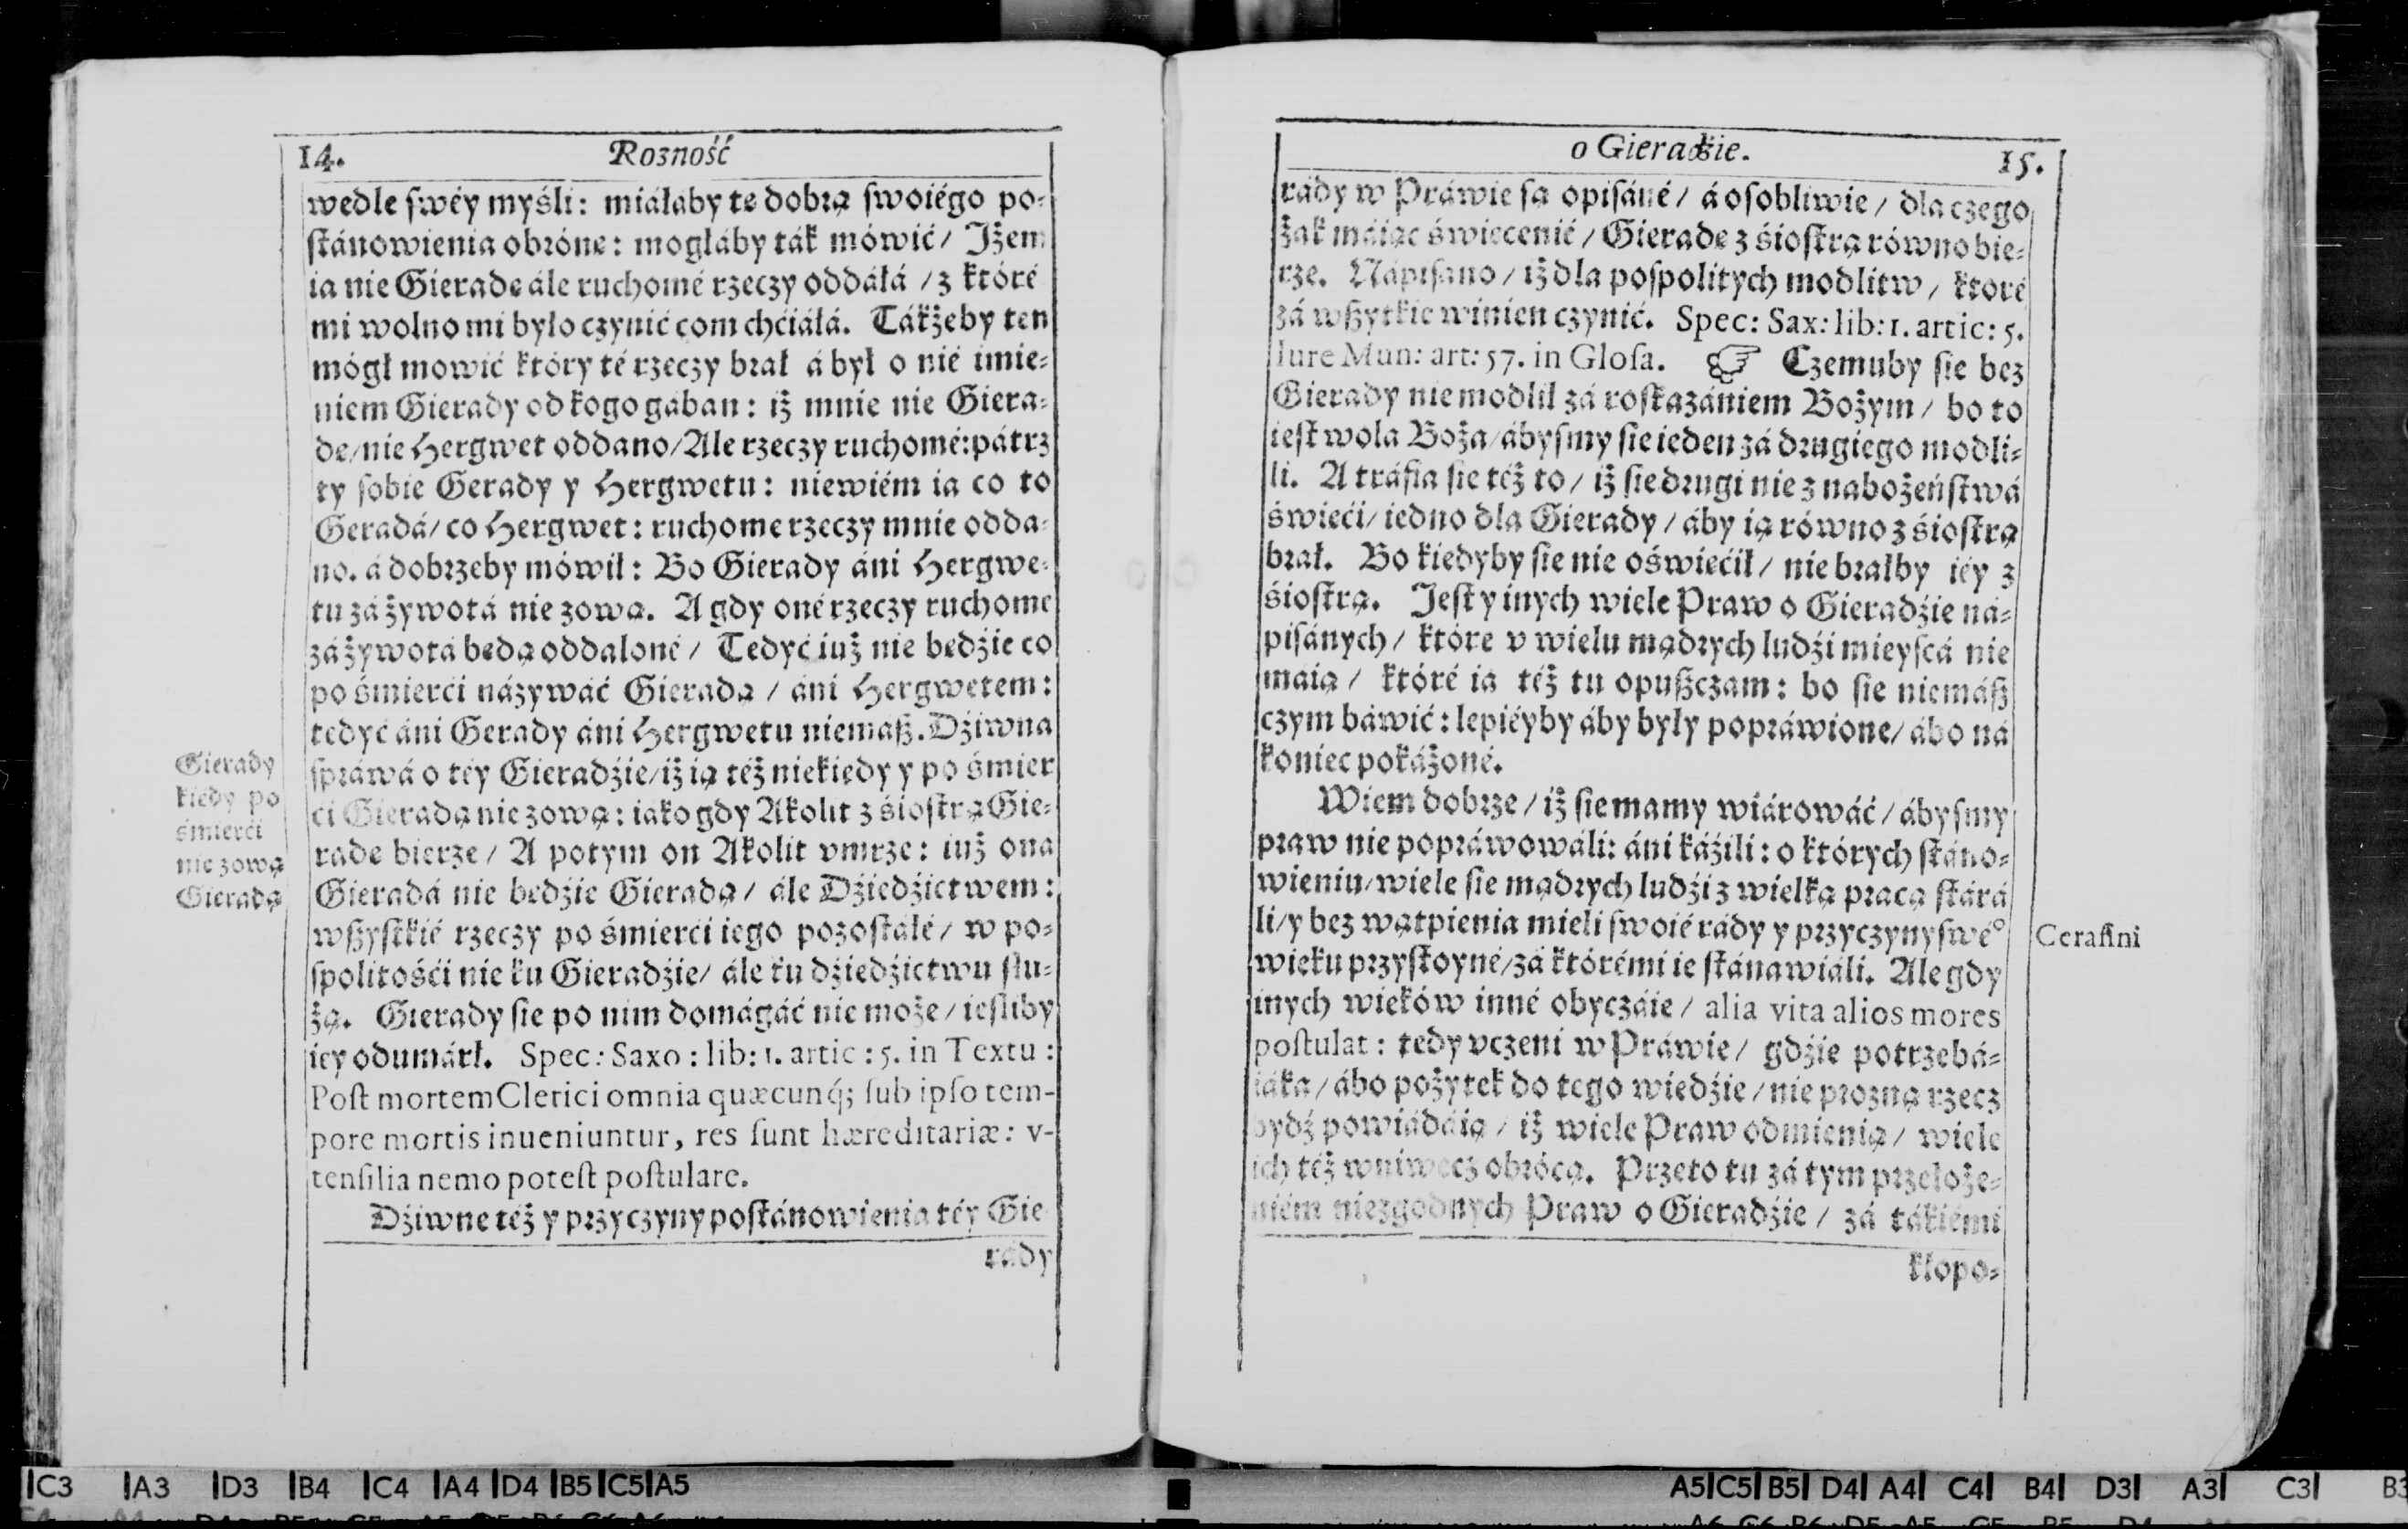 14. Rozność
wedle swéy myśli: miáłaby te dobrą swoiégo po-
stánowienia obróne: mogłáby ták mówić/ Jżem
ia nie Gierade ále ruchomé rzeczy oddáłá / z któré
mi wolno mi było czynić com chćiáłá. Tákżeby ten
mógł mowić który té rzeczy brał á był o nié imie-
niem Gierady od kogo gában: iż mnie nie Giera-
de/ nie Hergwet oddano/ Ale rzeczy ruchomé: pátrz
ty sobie Gerady y Hergwetu: niewiém ia co to
Geradá/ co Hergwet: ruchome rzeczy mnie odda-
no. á dobrzeby mówił: Bo Gierady áni Hergwe-
tu zá żywotá nie zową. A gdy oné rzeczy ruchome
zá żywotá bedą oddaloné / Tedyć iuż nie bedźie co
po śmierći názywáć Gieradą / áni Hergwetem:
tedyć áni Gerady áni Hergwetu niemaß. Dźiwna
spráwá o téy Gieradźie/ iż ią téż niekiedy y po śmier
ći Gieradą nie zową: iako gdy Akolit z śiostrą Gie-
rade bierze/ A potym on Akolit vmrze: iuż ona
Gieradá nie bedźie Gieradą/ ále Dźiedźictwem:
wßystkié rzeczy po śmierći iego pozostałé/ w po-
spolitośći nie ku Gieradźie/ ále ku dźiedźictwu słu-
żą. Gierady sie po nim domágáć nie może/ iesliby
iéy odumárł. Spec: Saxo: lib: 1. artic: 5. in Textu:
Post mortem Clerici omnia quæcunq́; sub ipso tem-
pore mortis inueniuntur, res sunt hæreditariæ: v-
tensilia nemo potest postulare.
Dźiwne téż y przyczyny postánowienia téy Gie
rády
Gierady
kiedy po
śmierći
nie zową
Gieradą
o Gieradźie. 15.
rády w Práwie są opisáné/ á osobliwie/ dla czego
żak máiąc świecenié/ Gierade z śiostrą równo bie-
rze. Nápisano/ iż dla pospolitych modlitw/ ktoré
zá wßytkie winien czynić. Spec: Sax: lib: 1. artic: 5.
Iure Mun: art: 57. in Glosa. ☞ Czemuby sie bez
Gierady nie modlił zá roskazániem Bożym/ bo to
iest wola Boża/ ábysmy sie ieden zá drugiego modli-
li. A tráfia sie téż to/ iż sie drugi nie z nabożeństwá
świeći/ iedno dla Gierady/ áby ią równo z śiostrą
brał. Bo kiedyby sie nie oświećił/ nie brałby iéy z
śiostrą. Jest y inych wiele Praw o Gieradźie ná-
pisánych/ które v wielu mądrych ludźi mieyscá nie
maią/ któré ia téż tu opußczam: bo sie niemáß
czym báwić: lepiéyby áby były popráwione/ ábo ná
koniec pokáżoné.
Wiem dobrze/ iż sie mamy wiárowáć/ ábysmy
praw nie popráwowáli: áni káźili: o których stáno-
wieniu/ wiele sie mądrych ludźi z wielką pracą stárá
li/ y bez wątpienia mieli swoié rády y przyczyny swé°
wieku przystoyné/ zá którémi ie stánawiáli. Ale gdy
inych wieków inné obyczáie/ alia vita alios mores
postulat: tedy vczeni w Práwie/ gdźie potrzebá-
iáka/ ábo pożytek do tego wiedźie/ nie prozną rzecz
bydź powiádáią/ iż wiele Praw odmienią/ wiele
ich téż wniwecz obrócą. Przeto tu zá tym przełoże-
niém niezgodnych Praw o Gieradźie/ zá tákiémi
kłopo-
Cerasini
C3 A3 D3 B4 C4 A4 D4 B5 C5 A5
A5 C5 B5 D4 A4 C4 B4 D3 A3 C3 B3